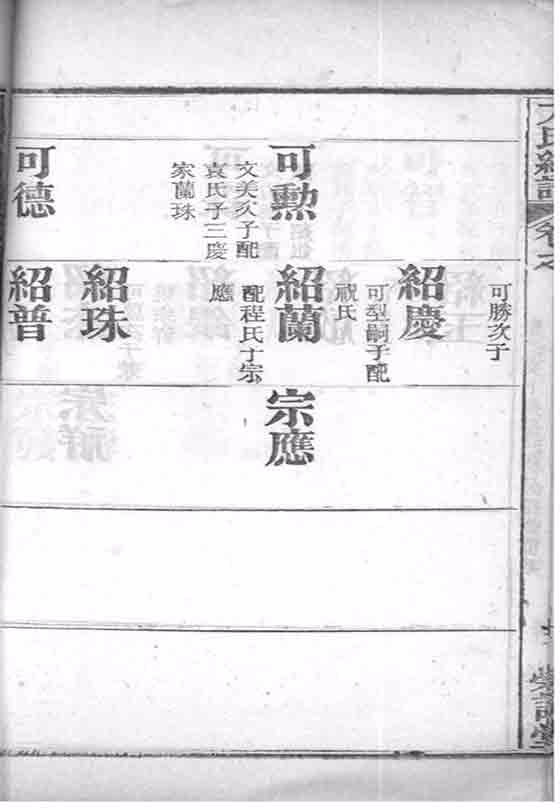 卷之
可勳
文美次子配
袁氏子三慶
家蘭珠
可德
可勝次子
紹慶
可型嗣子配
祝氏
紹蘭
配程氏丁宗
應
紹珠
紹普
宗應